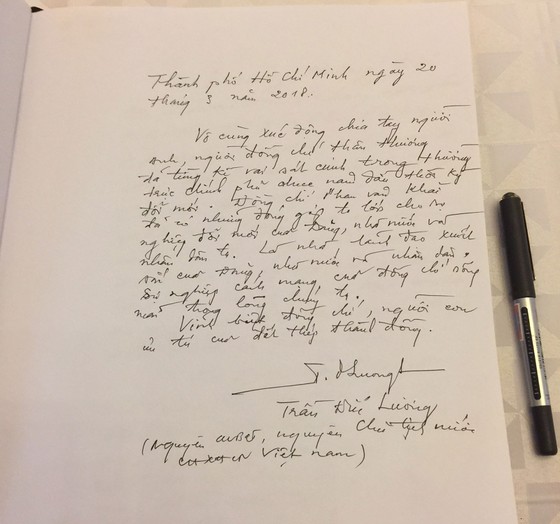 Thành phố Hồ Chí Minh ngày 20
tháng 3 năm 2018.
Vô cùng xúc động chia tay người
anh, người đồng chí thân thương
đã từng kề vai sát cánh trong thường
trực chính phủ những năm đầu thời kỳ
đổi mới. Đồng chí Phan Văn Khải
đã có những đóng góp to lớn cho sự
nghiệp đổi mới của Đảng, nhà nước và
nhân dân ta. Là nhà lãnh đạo xuất
sắc của Đảng, nhà nước và nhân dân,
sự nghiệp cách mạng của đồng chí sống
mãi trong lòng chúng ta.
Vĩnh biệt đồng chí, người con
ưu tú của đất thép thành đồng.
Trần Đức Lương
(Nguyên UVBCT, nguyên Chủ tịch nước
CHXHCN Việt Nam)